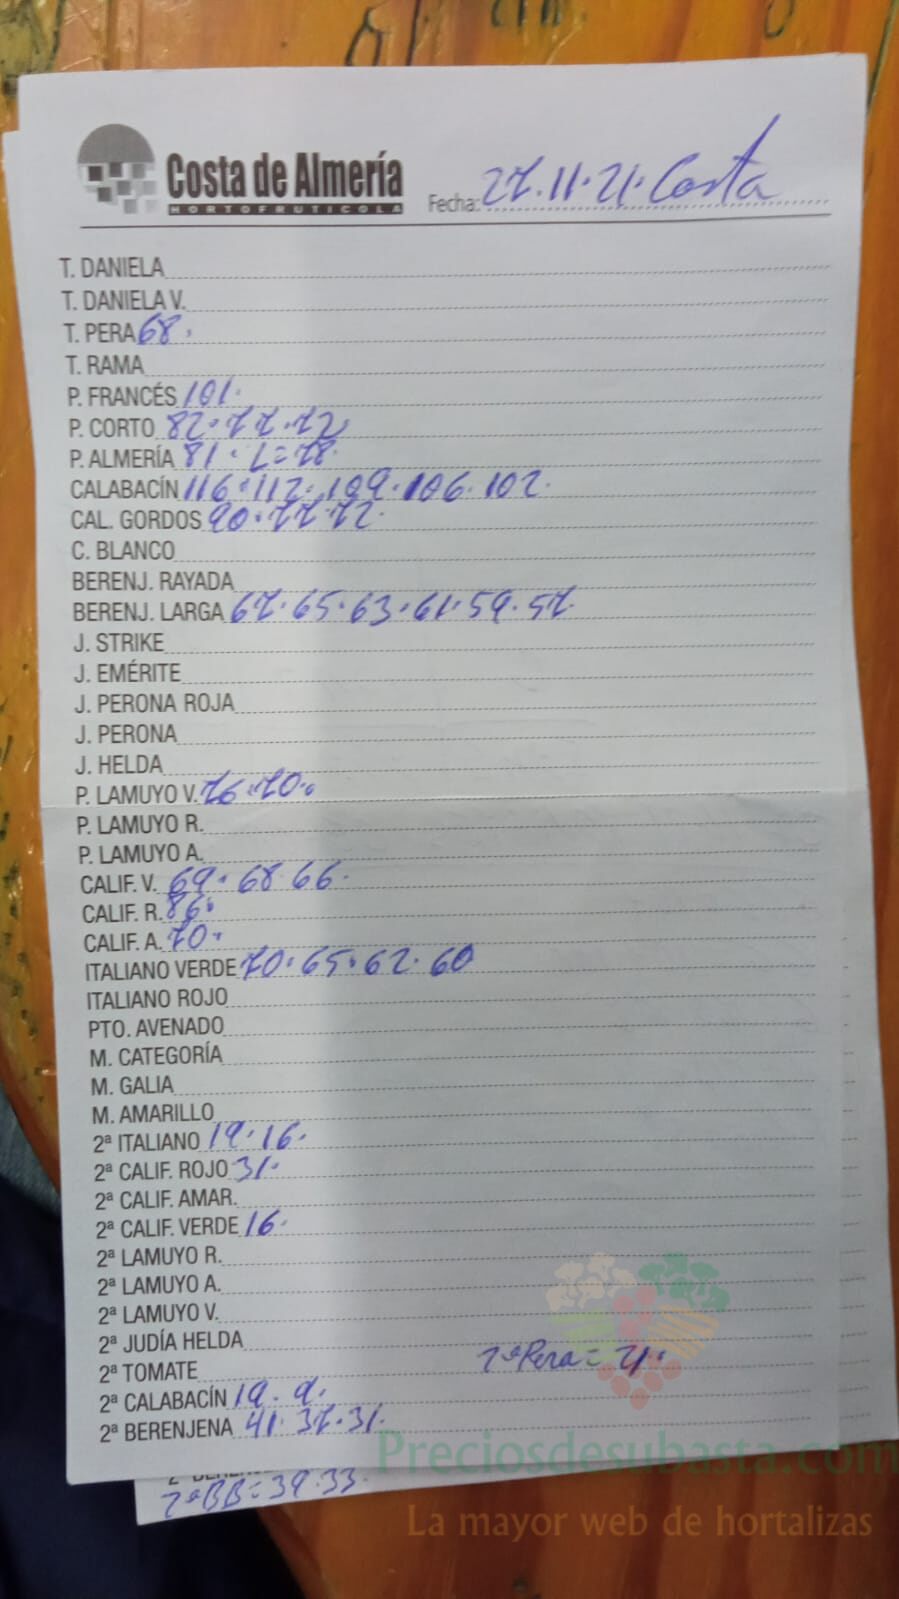 Costa de Almería
HORTOFRUTICOLA
Fecha: 27.11.21. Costa
T. DANIELA
T. DANIELA V.
T. PERA 68.
T. RAMA
P. FRANCÉS 101.
P. CORTO 82.77.72
P. ALMERÍA 81. L=78.
CALABACÍN 116.112.109.106.102.
CAL. GORDOS 90.77.72.
C. BLANCO
BERENJ. RAYADA
BERENJ. LARGA 67.65.63.61.59.57.
J. STRIKE
J. EMÉRITE
J. PERONA ROJA
J. PERONA
J. HELDA
P. LAMUYO V. 76.70..
P. LAMUYO R.
P. LAMUYO A.
CALIF. V. 69.68 66.
CALIF. R. 86.
CALIF. A. 70.
ITALIANO VERDE 70.65.62.60
ITALIANO ROJO
PTO. AVENADO
M. CATEGORÍA
M. GALIA
M. AMARILLO
2ª ITALIANO 19.16.
2ª CALIF. ROJO 31.
2ª CALIF. AMAR.
2ª CALIF. VERDE 16.
2ª LAMUYO R.
2ª LAMUYO A.
2ª LAMUYO V.
2ª JUDÍA HELDA
2ª TOMATE 2ª Pera=
2ª CALABACÍN 19. 9.
2ª BERENJENA 41.37.31.
2ªBB=39.33.
Preciosdesubasta.com
La mayor web de hortalizas